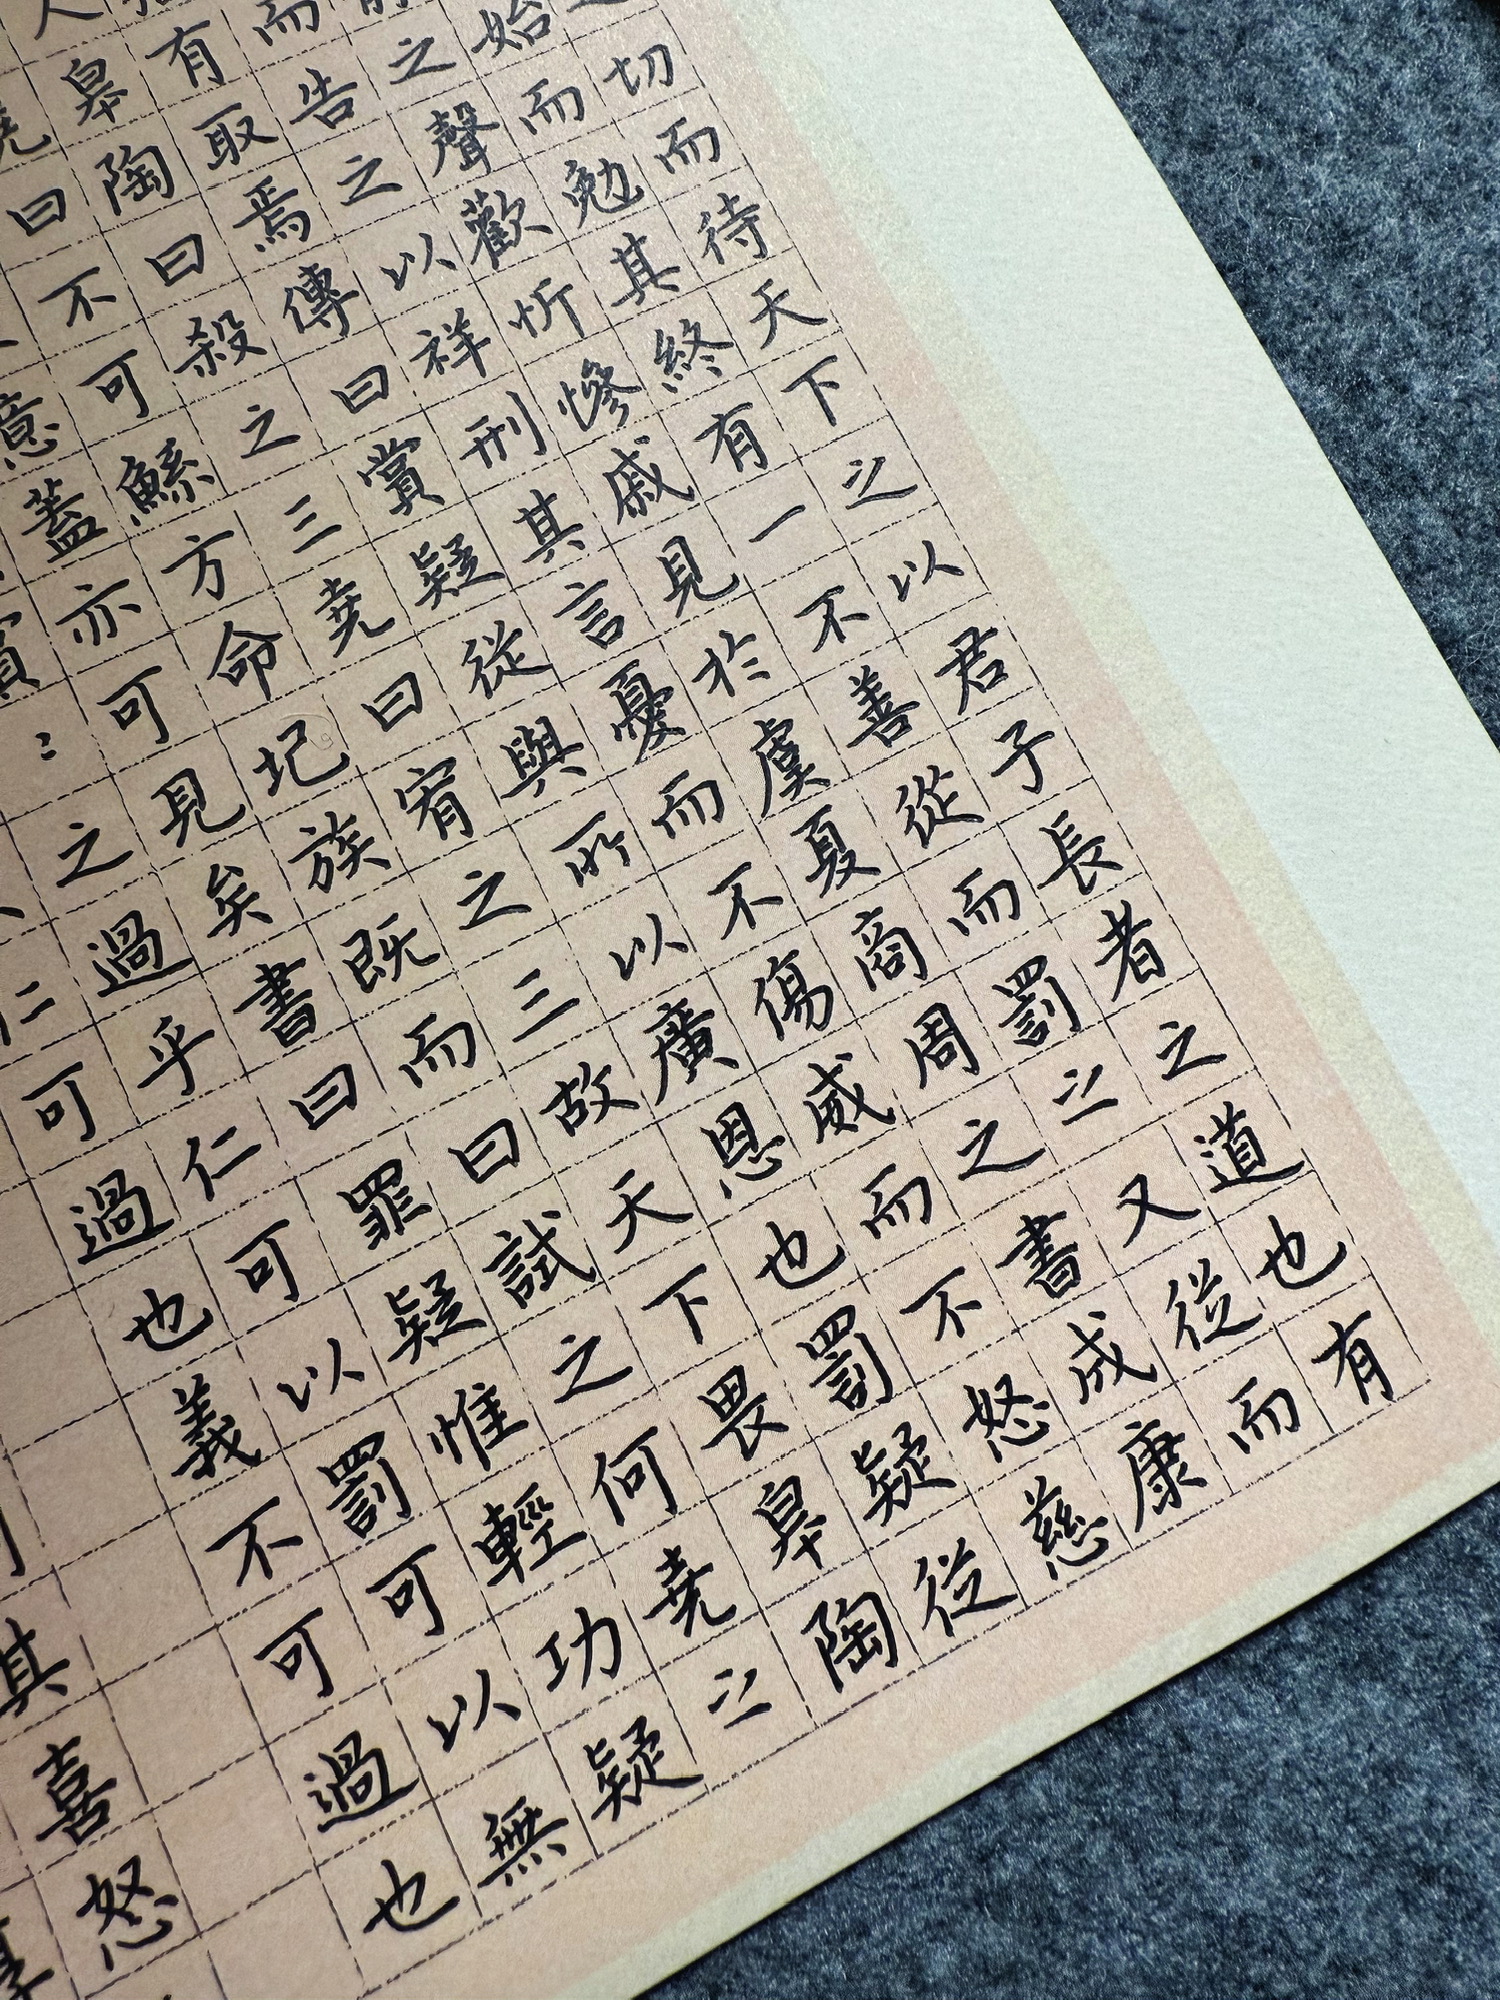 切而待天下之以君子長者之道也有
始而勉其終有一不善從而罰之又從而
之聲歡忻慘戚見於虞夏商周之書成康
而告之以祥刑其言憂而不傷威而不怒慈
有取焉傳曰賞疑從與所以廣恩也罰疑從
人皋陶曰殺之三堯曰宥之三故天下畏皋陶
堯曰不可鯀方命圮族既而曰試之何堯之
意蓋亦可見矣書曰罪疑惟輕功疑
賞〻之過乎仁可以罰可以無
仁可過也義不可過也
其喜怒
厚